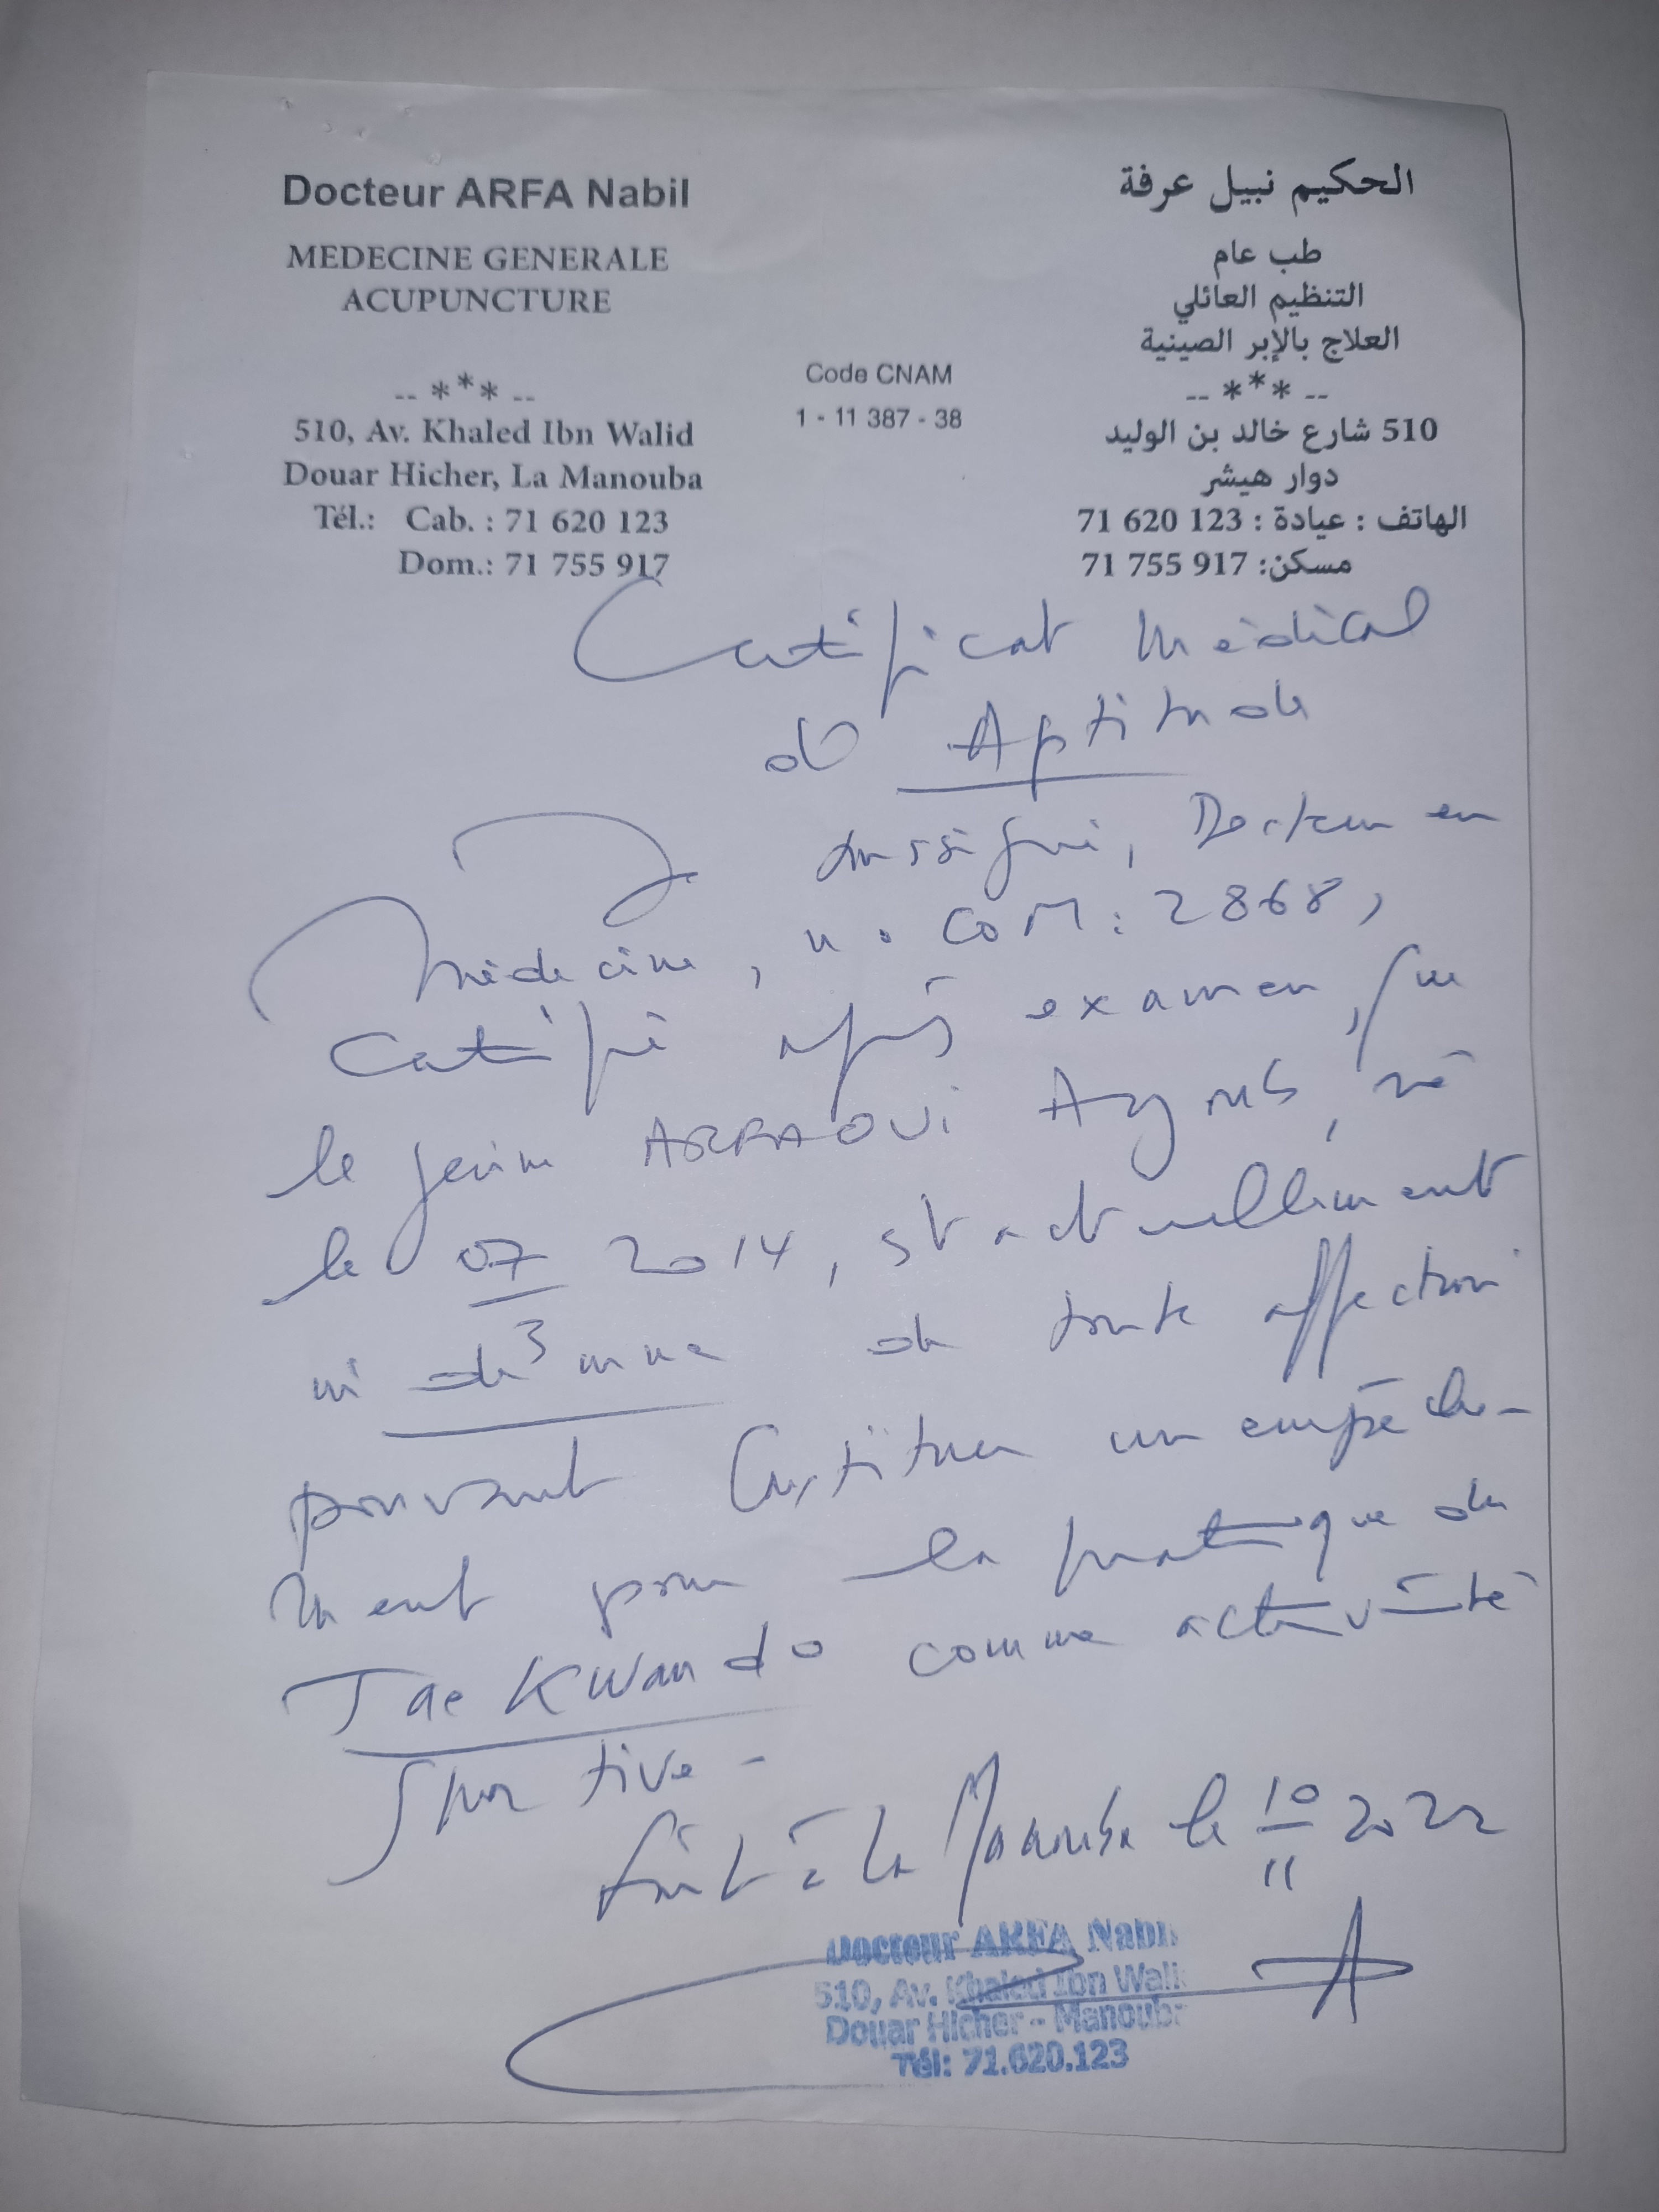 Docteur ARFA Nabil
MEDECINE GENERALE
ACUPUNCTURE
-- *** --
510, Av. Khaled Ibn Walid
Douar Hicher, La Manouba
Tél.: Cab. : 71 620 123
Dom.: 71 755 917
Code CNAM
1 - 11 387 - 38
الحكيم نبيل عرفة
طب عام
التنظيم العائلي
العلاج بالإبر الصينية
-- *** --
510 شارع خالد بن الوليد
دوار هيشر
الهاتف : عيادة : 123 620 71
مسكن: 917 755 71
Certificat Médical
d'Aptitude
Je soussigné, Docteur en
Médecine, n° COM: 2868,
Certifie après examen, que
le jeune ARFAOUI Ayoub, né
le 07 2014, est actuellement
3
de toute affection
pouvant Constituer un empêche-
ment pour la pratique du
TaeKwando comme activité
sportive -
fait à la Manouba le 10/11 2022
Docteur ARFA Nabil
510, Av. Khaled Ibn Wali
Douar Hicher - Manouba
Tél: 71.620.123